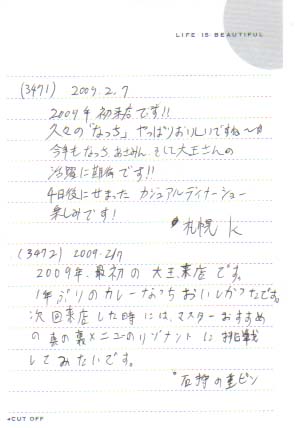 LIFE IS BEAUTIFUL
(3471) 2009.2.7
2009年初来店です!!
久々の「なっち」やっぱりおいしいですね〜
今年もなっち、あさみん そして大王さんの
活躍に期待です!!
4日後にせまった カジュアルディナーショー
楽しみです!
札幌 K
(3472) 2009.2/7
2009年、最初の大王来店です。
1年ぶりのカレーなっちおいしかったです。
次回来店した時には、マスターおすすめ
の真の裏メニューのリゾナントに挑戦
してみたいです。
石狩の重ピン
CUT OFF